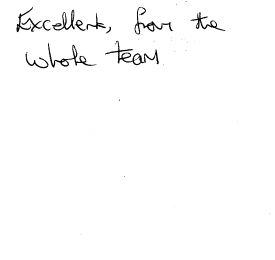 Excellent, from the
whole team